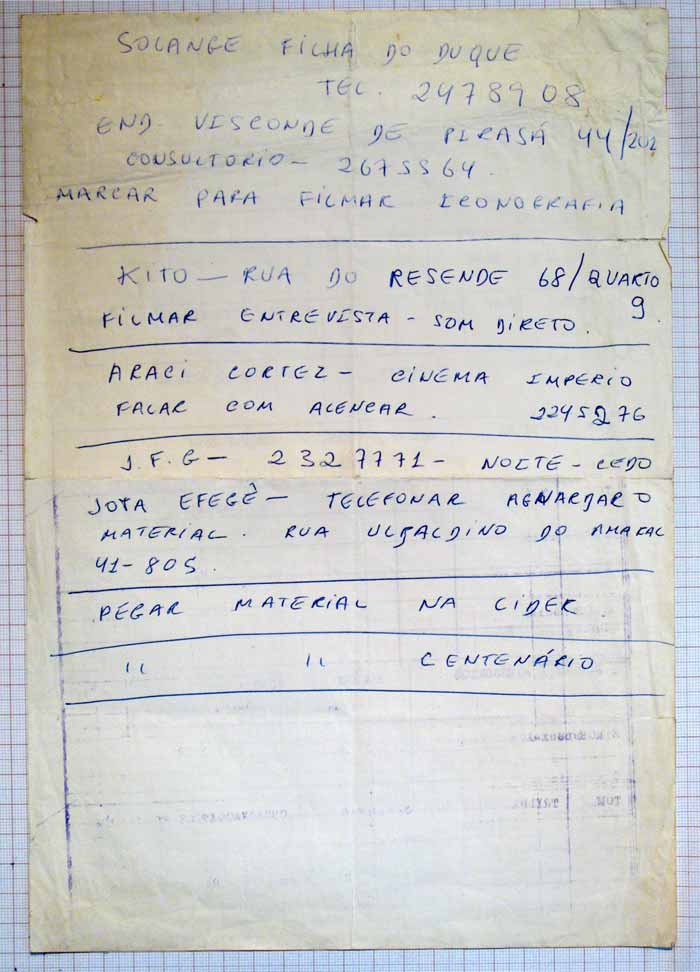 SOLANGE FILHA DO DUQUE
TEL. 2478908
END. VISCONDE DE PIRASÁ 44/202
CONSULTORIO - 2675564.
MARCAR PARA FILMAR ICONOGRAFIA
KITO - RUA DO RESENDE 68/QUARTO
9.
FILMAR ENTREVISTA - SOM DIRETO.
ARACI CORTEZ - CINEMA IMPERIO
FALAR COM ALENCAR. 2245276
J.F.G - 2327771 - NOITE - CEDO
JOTA EFEGÊ - TELEFONAR AGUARDAR O
MATERIAL. RUA ULBALDINO DO AMARAL
41-805.
PEGAR MATERIAL NA CIDER.
" " CENTENÁRIO